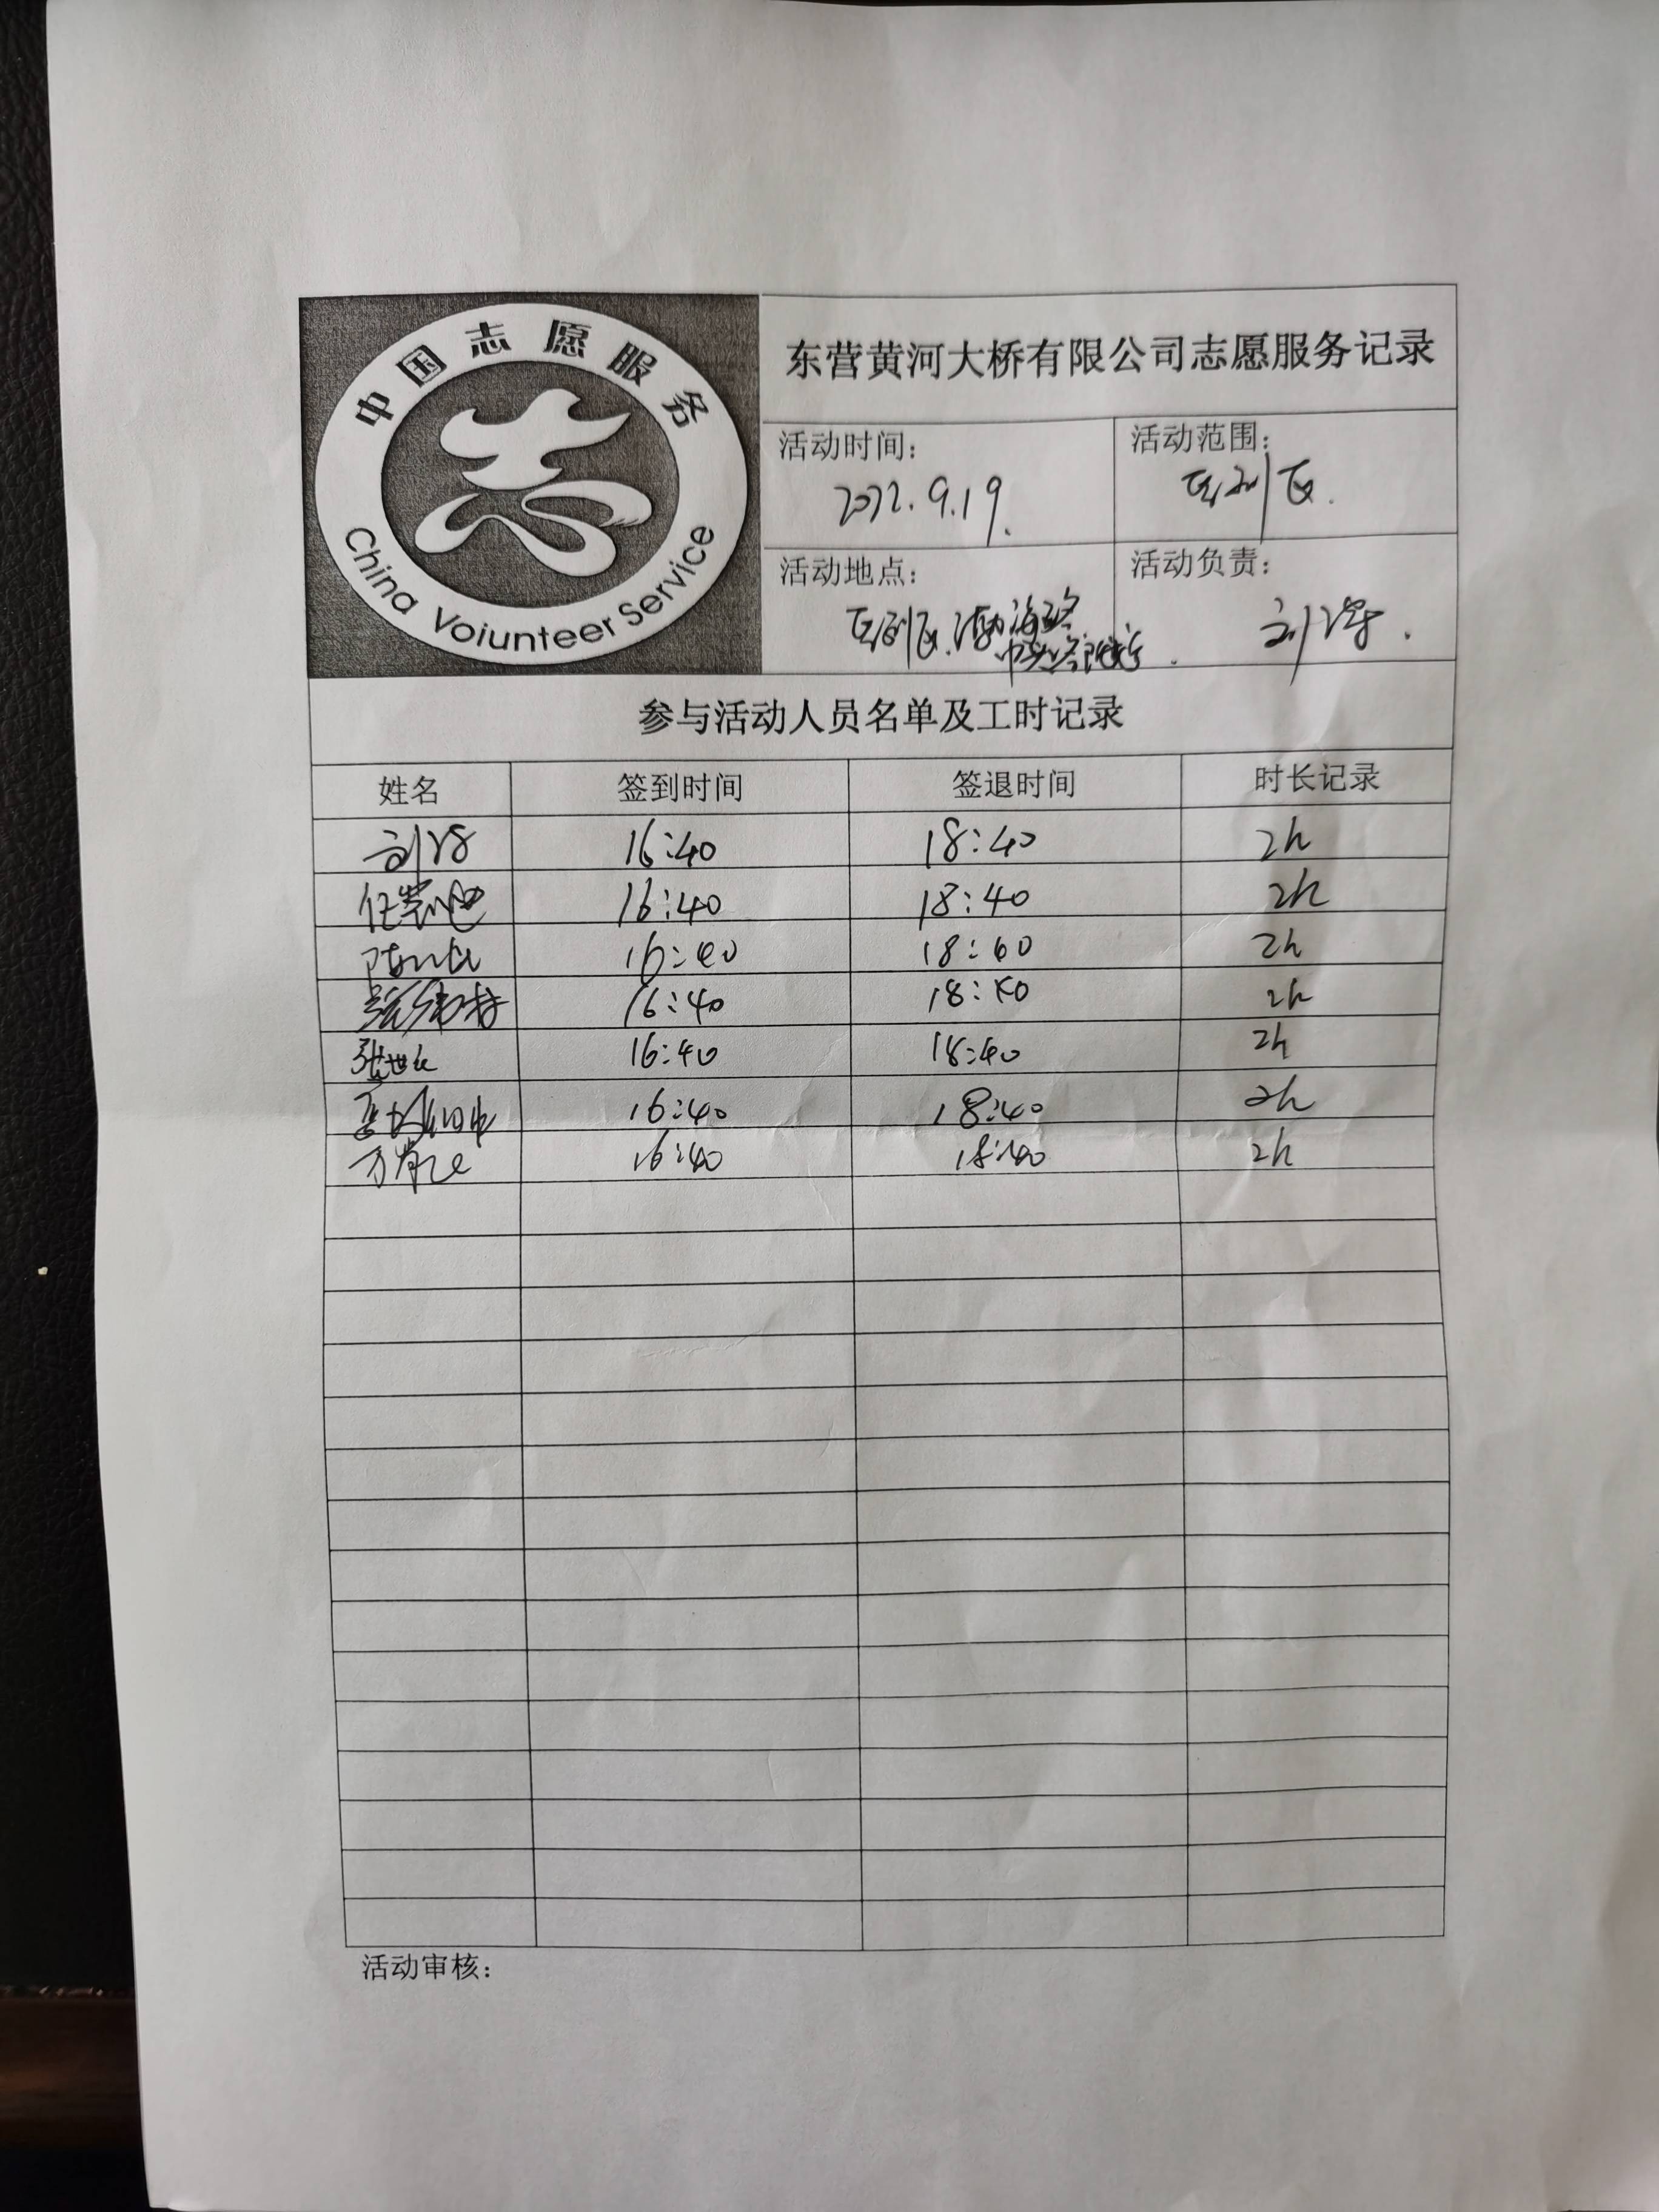 中国志愿服务
China Voiunteer Service
东营黄河大桥有限公司志愿服务记录
活动时间：
活动范围：
2022.9.19.
垦利区.
活动地点：
活动负责：
垦利区.渤海路
参与活动人员名单及工时记录
姓名 签到时间 签退时间 时长记录
16:40 18:40 2h
16:40 18:40 2h
16:40 18:40 2h
16:40 18:40 2h
张世 16:40 18:40 2h
16:40 18:40 2h
16:40 18:40 2h
活动审核：